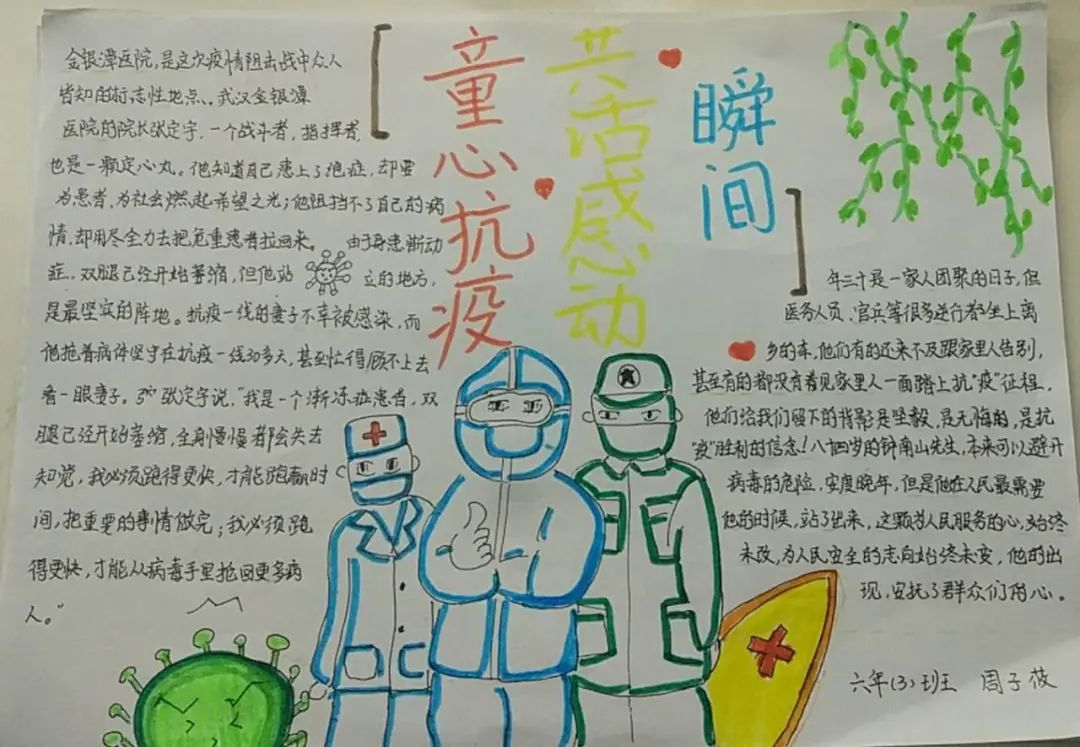 童心抗疫
共话感动
瞬间
金银潭医院,是这次疫情阻击战中众人
皆知的标志性地点、武汉金银潭
医院的院长张定宇,一个战斗者,指挥者,
也是一颗定心丸。他知道自己患上了绝症,却要
为患者,为社会燃起希望之光;他阻挡不了自己的病
情,却用尽全力去把危重患者拉回来。由于身患渐动
症,双腿已经开始萎缩,但他站立的地方,
是最坚实的阵地。抗疫一线的妻子不幸被感染,而
他拖着病体坚守在抗疫一线30多天,甚至忙得顾不上去
看一眼妻子。张定宇说,"我是一个渐冻症患者,双
腿已经开始萎缩,全身慢慢都会失去
知觉,我必须跑得更快,才能跑赢时
间,把重要的事情做完;我必须跑
得更快,才能从病毒手里抢回更多病
人。"
年三十是一家人团聚的日子,但
医务人员、官兵等很多逆行者坐上离
乡的车,他们有的还来不及跟家里人告别,
甚至有的都没有看见家里人一面踏上抗"疫"征程,
他们给我们留下的背影是坚毅,是无悔的,是抗
"疫"胜利的信念!八十四岁的钟南山先生,本来可以避开
病毒的危险,安度晚年,但是他在人民最需要
他的时候,站了出来,这颗为人民服务的心,始终
未改,为人民安全的志向始终未变,他的出
现,安抚了群众们的心。
六年(3)班 周子薇